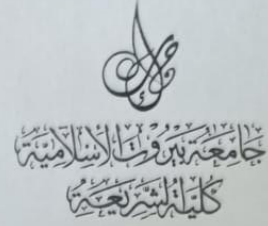 جَامِعَة بَيْرُوت الإِسْلَامِيَّة
كُلِّيَّة الشَّرِيعَة